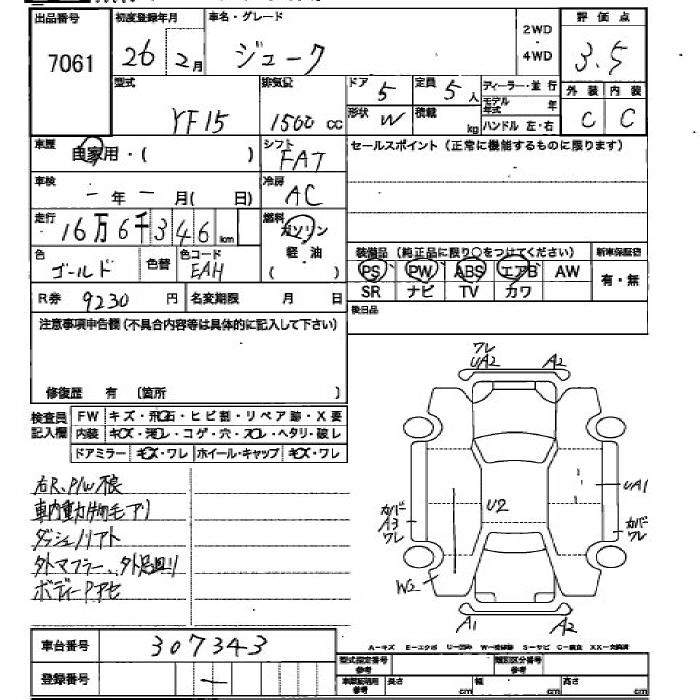 出品番号 初度登録年月 車名・グレード 2WD・4WD 評価点
7061 26 2月 ジューク 3.5
型式 排気量 ドア 5 定員 5人 ディーラー・並行 外装 内装
YF15 1500cc 形状 W 積載 kg モデル年式 年 C C
ハンドル 左・右
車歴 自家用・( ) シフト FAT セールスポイント(正常に機能するものに限ります)
車検 ー年ー月( 日) 冷房 AC
走行 16万6千346km 燃料 ガソリン
軽油
( )
色 ゴールド 色替 色コード EAH 装備品(純正品に限り○をつけてください) 新車保証書
PS PW ABS エアB AW 有・無
SR ナビ TV カワ
R券 9230円 名変期限 月 日
後日品
注意事項申告欄(不具合内容等は具体的に記入して下さい)
修復歴 有 〔箇所 〕
検査員記入欄 FW キズ・飛石・ヒビ割・リペア跡・X要
内装 キズ・汚レ・コゲ・穴・スレ・ヘタリ・破レ
ドアミラー キズ・ワレ ホイール・キャップ キズ・ワレ
右R.P/W
車内動物毛アリ
外マフラー、外足回り
ボディーPアセ
ワレ
UA2 A2
UA1
U2
カバド A3 ワレ
カバー ワレ
W2
A1 A2
車台番号 307343
登録番号 ー
A−キズ E−エクボ U−凹み W−補修跡 S−サビ C−腐食 XX−交換済
型式指定番号 参考 類別区分番号 参考
車庫証明用 参考 長さ cm 幅 cm 高さ cm